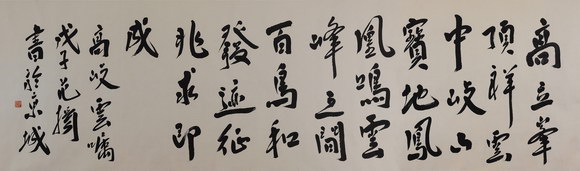 高立峯
頂祥雲
中岐山
寶地鳳
凰鳴雲
峰之間
百鳥和
發迹征
兆求即
成
高岐雲囑
戊子范
書於京城